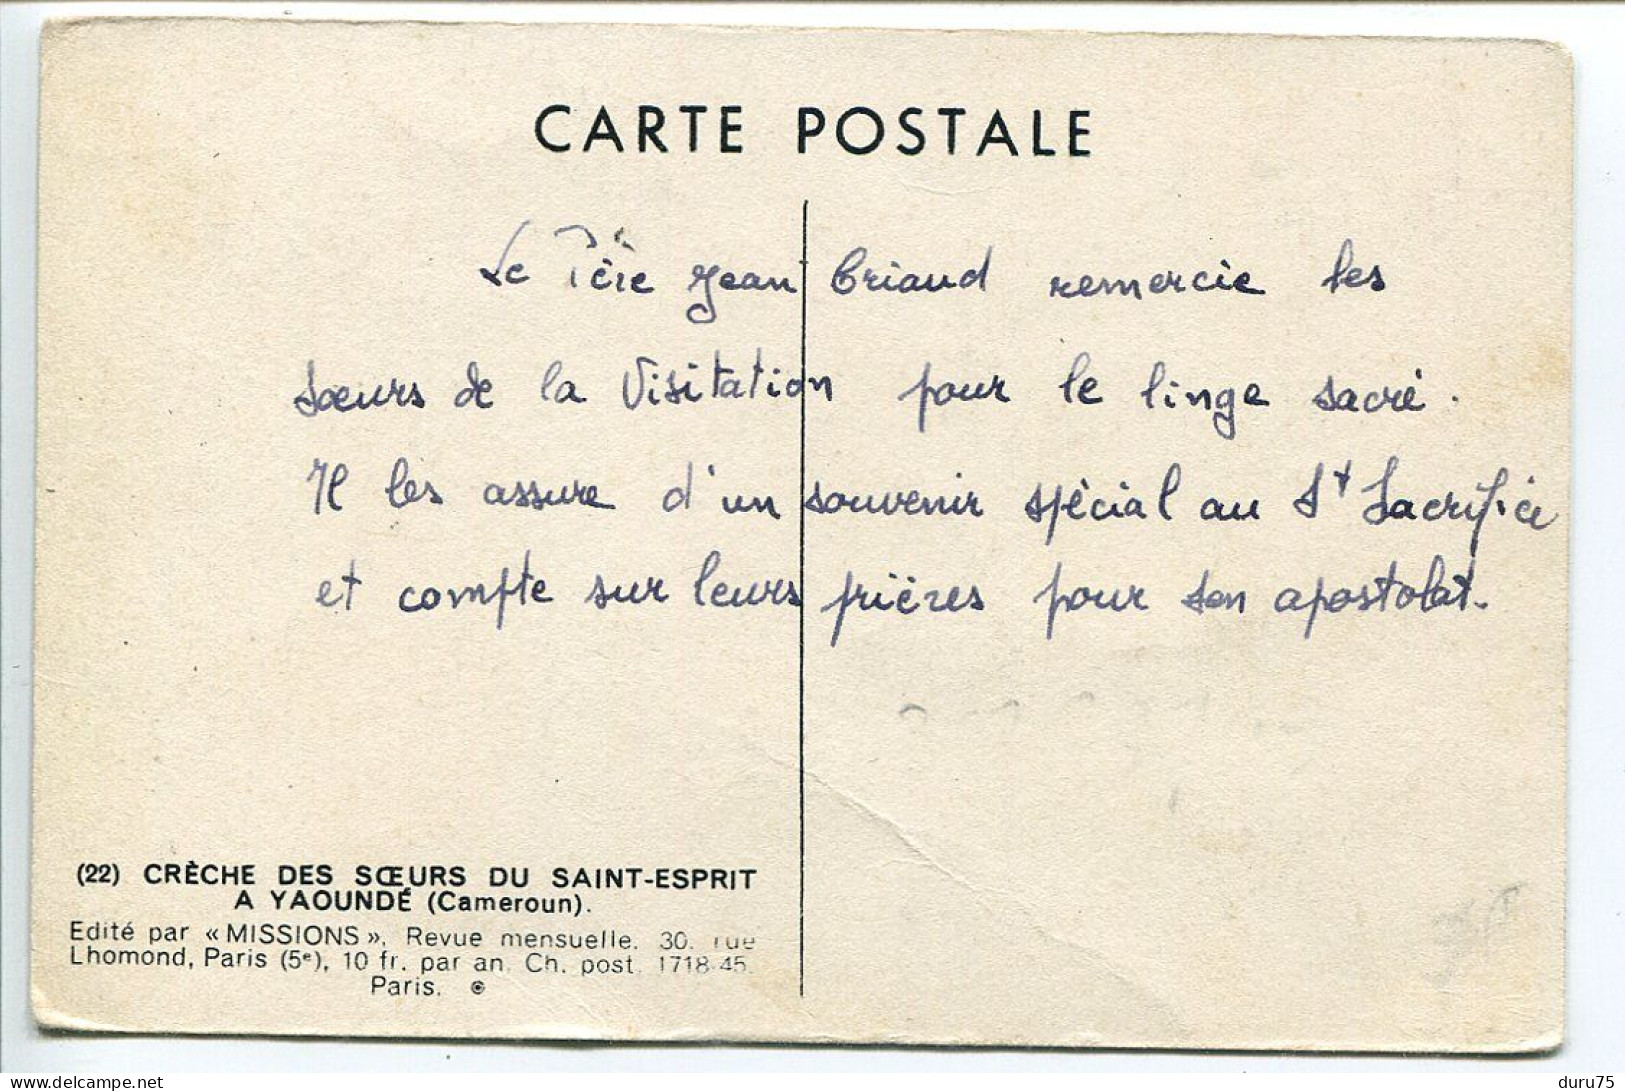 CARTE POSTALE
Le Père Jean Criaud remercie les
sœurs de la Visitation pour le linge sacré.
Il les assure d'un souvenir spécial au St Sacrifice
et compte sur leurs prières pour son apostolat.
(22) CRÈCHE DES SŒURS DU SAINT-ESPRIT
A YAOUNDÉ (Cameroun).
Edité par « MISSIONS ». Revue mensuelle. 30. rue
Lhomond, Paris (5e), 10 fr. par an. Ch. post. 1718-45.
Paris.
delcampe.net
duru75